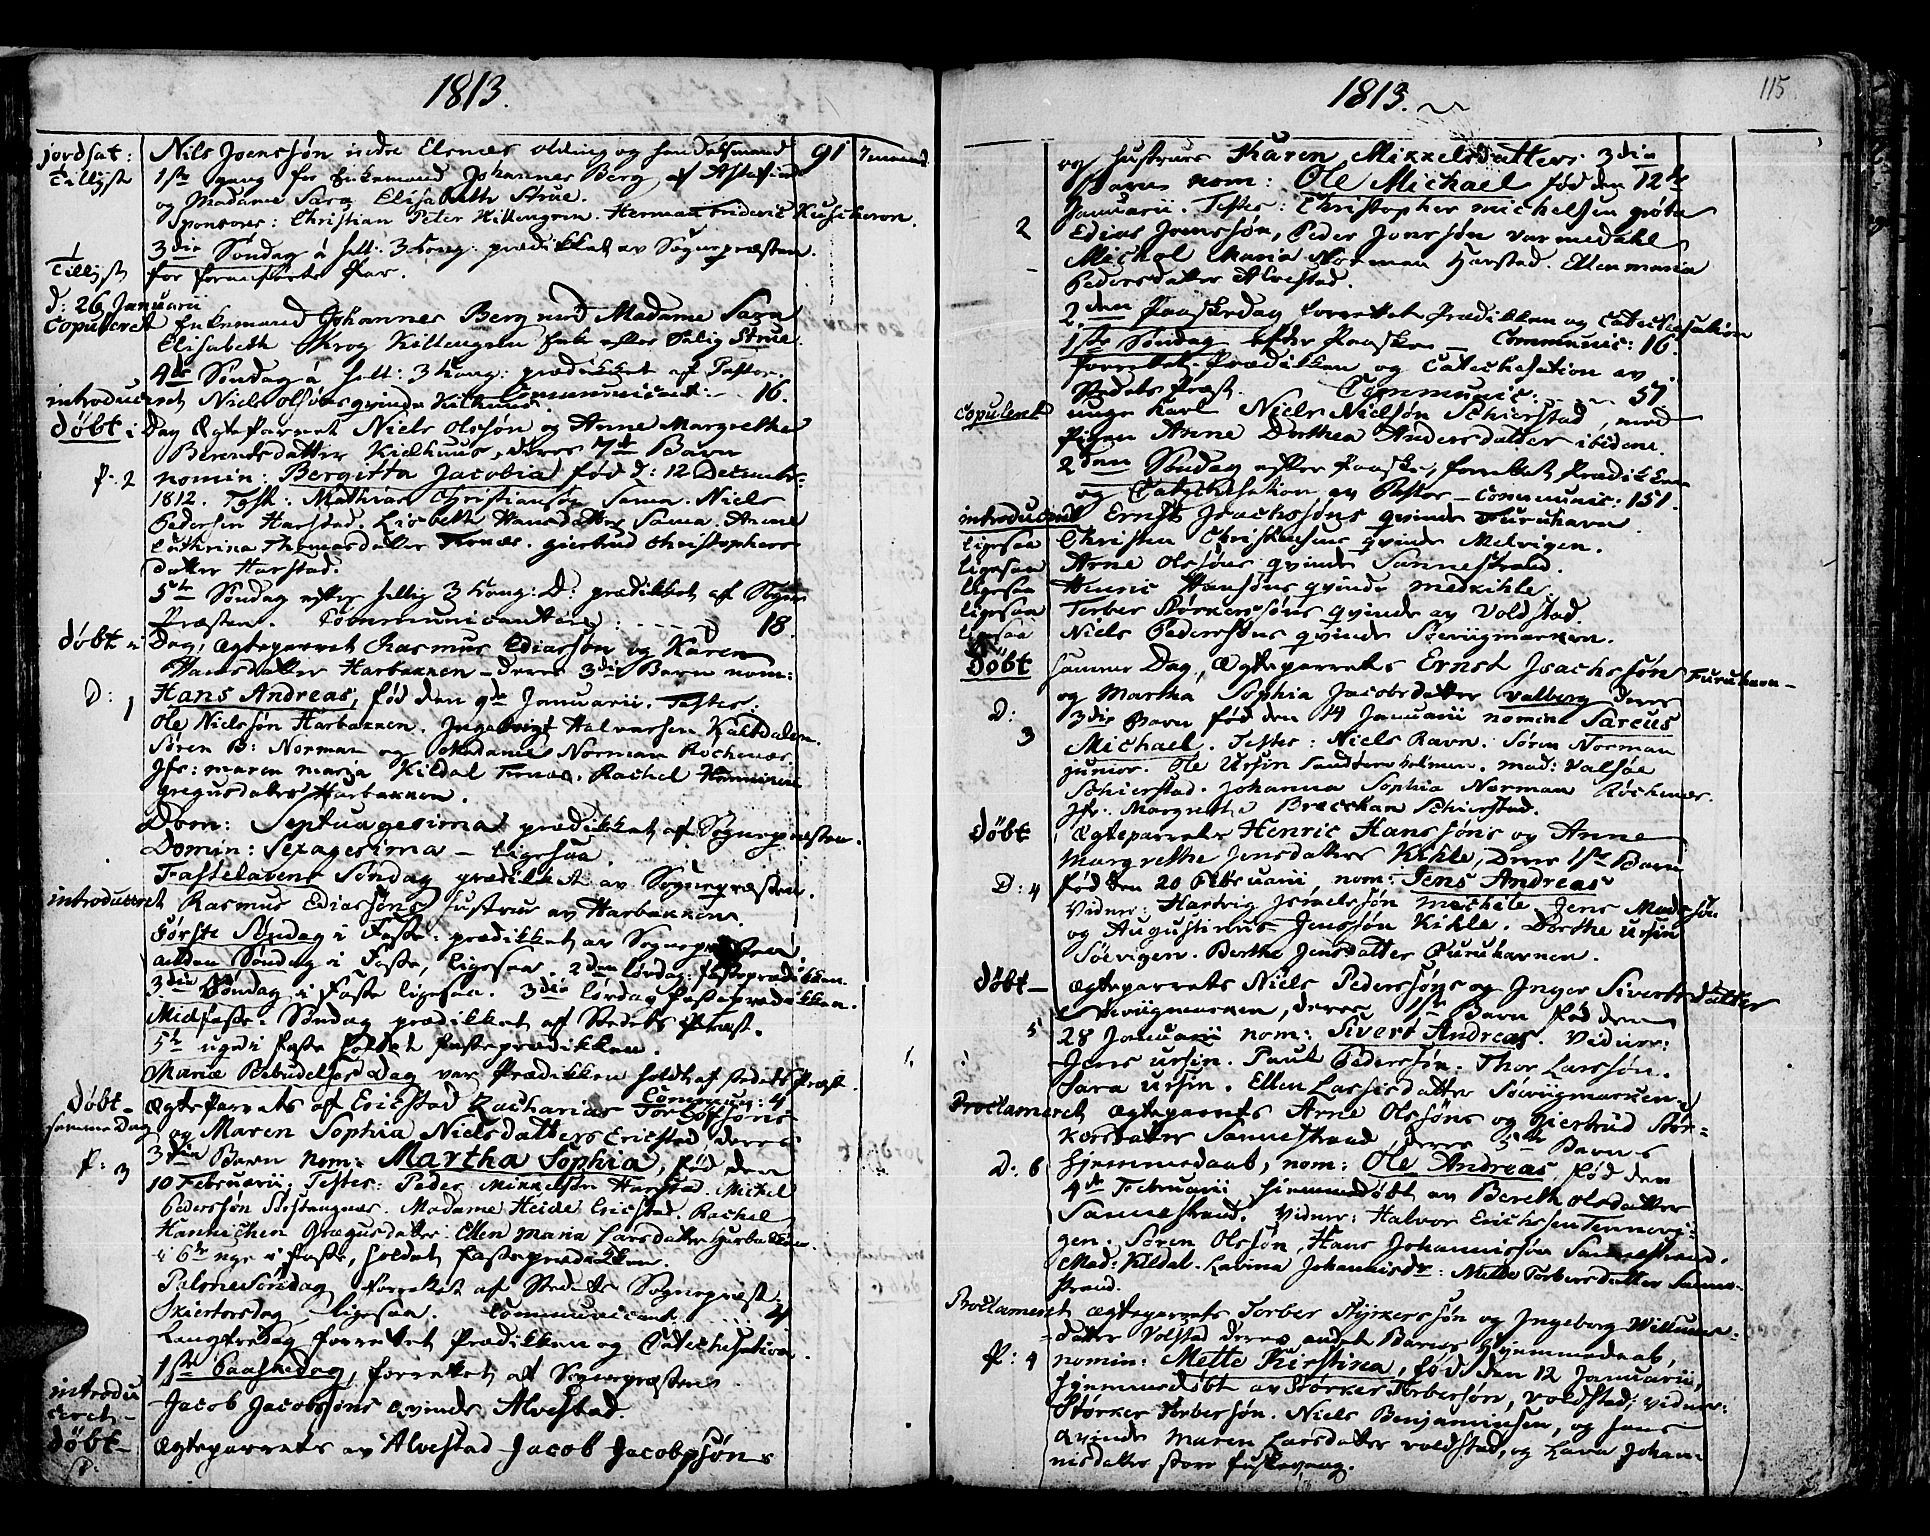 1813.
jordsat: Nils Joenssøn indre Elsnæs olding og handelsmand 91
Tillyst 1ste gang for Enkemand Johannes Berg af
og Madame Sara Elisabeth Strue.
Sponsores: Christian Peter Killengren. Herman Frideric
3die Søndag à hell: 3 Kong: prædikket av Sognepræsten.
Tillyst for formeldte Par.
d: 26 Januarii
Copuleret Enkemand Johannes Berg med Madame Sara
Elisabeth Krog Killengren Enke efter Salig Strue.
4de Søndag à hell: 3 Kong: prædikket af Pastor.
Communicant: 16.
introduceret Niels Olssøns qvinde Kilhuus.
døbt i Dag Ægteparret Niels Olssøn og Anne Margrethe
Berentsdatter Kielhuus, deres 7de Barn
P: 2 nomin: Bergitta Jacobia, fød d: 12 Decembr:
1812. Test: Mathias Christiansøn Sama. Niels
Pedersen Harstad. Lisbeth Hansdatter Sama. Anne
Cathrina Thomasdatter Ternæs. Giertrud Christophers
datter Harstad.
5te Søndag efter hellig 3 Kong: D: prædikket af Sogne
Præsten. Communicantere: 18.
døbt i Dag, Ægteparret Rasmus Ediassøn og Karen
Hansdatter Harbakken deres 3die Barn nom:
D: 1 Hans Andreas, fød den 9de Januarii. Testes:
Ole Nielssøn Harbakken. Ingebrigt Halvorsen Kaltdalen.
Søren B: Norman og Madame Norman Rochenæs.
Jfr: maren maria Kildal Ternæs. Rachel
gregusdatter Harbakken.
Dom: Septuagesima prædikket af Sognepræsten.
Domin: Sexagesima - Ligesaa.
Fastelavens Søndag prædikket av Sognepræsten.
introduceret Rasmus Ediassøns hustrue av Harbakken
Første Søndag i Faste: prædikket av Sognepræsten
anden Søndag i Faste, ligesaa. 2den lørdag: fasteprædikken.
3die Søndag i Faste ligesaa. 3die lørdag fasteprædikken.
Midfaste: Søndag prædikket af Stedets Præst.
5te uge i Faste holdet Fasteprædikken.
Mariæ Bebudelses Dag var Prædikken holdt af Stedets Præst.
Commun: 4
døbt - Ægteparrets af Ericstad Zacharias Torlofsøns
samme Dag og Maren Sophia Nielsdatters Ericstad deres
P: 3 3die Barn nom: Martha Sophia, fød den
10 Februarii: Testes: Peder Mikkelsen Harstad. Mickel
Pederssøn Madame Heide Ericstad. Rachel
Hannichen Gregusdatter. Ellen Maria Larsdatter Harbakken.
i 6te uge i Faste, holdet fasteprædikken.
Palme Søndag forrettet af Stedets Sognepræst.
Skiertorsdag - ligesaa. Communicant. 4
Langfredag forrettet Prædikken og Catechisation.
1ste Paaskedag, forrettet af Sognepræsten.
introdu
ceret - Jacob Jacobsøns qvinde Alvestad.
døbt - Ægteparrets av Alvestad Jacob Jacobssøns
1813.
115
og hustrues Karen Mikkelsdatters 3die
Barn nom: Ole Michael fød den 12te
Januarii. Testes: Christopher michelsen grøta
2 Edias Joenssøn, Peder Jonssøn varmedahl
Michal Maria Norman Harstad. Ellen maria
Pedersdatter Alvestad.
2den Paaskedag forrettet Prædikken og Catechisation
1ste Søndag efter Paaske - Communic: 16.
forrettet Prædikken og Catechisation av
Stedets Præst. Communic: 57.
Copuleret unge Karl Niels Nielsøn Schierstad, med
Pigen Anne Dorthea Andersdatter ibidem.
2den Søndag efter Paaske, forrettet Prædikken
og Catechisation av Pastor - Communic: 151.
introduceret Ernst Isachssøns qvinde Furuhavn.
ligesaa Christen Christensens qvinde Melvigen.
ligesaa Arne Olssøns qvinde Sannestrand.
ligesaa Henric Hansøns qvinde medkihle
ligesaa Torber Størkerssøns qvinde av Voldstad.
ligesaa Niels Pederssøns qvinde Søevigmarken.
døbt samme Dag, Ægteparrets Ernst Isachssøn Furuhavn -
og Martha Sophia Jacobsdatter Valberg deres
D: 3 3die Barn fød den 14 Januarii nomin: Sareus
Michael. Testes: Niels Ravn. Søren Norman
junior. Ole Ursin Sandtorvholmen. mad: Valsøe
Schierstad. Johanna Sophia Norman Røchenæs.
Jfr: Margrethe Schierstad.
døbt Ægteparrets Henric Hanssøns og Anne
Margrethe Jensdatters Kihle, deres 1ste Barn
D: 4 fød den 20 Februarii nom: Jens Andreas
Vidner: Hartvig Israelssøn Jens Madssøn
og Augustinus Jenssøn Kihle. Dorthe Ursin
Søevigen. Berthe Jensdatter Furuhavnen.
døbt - Ægteparrets Niels Pederssøns og Inger Siverts datter
Søevigmarken, deres 1ste Barn fød den
5 28 Januarii nom: Sivert Andreas. Vidner:
Jens Ursin. Paul Pederssøn. Thor Larssøn.
Sara Ursin. Ellen Larsisdatter Søevigmarken
Proclameret Ægteparrets Arne Olssøns og Giertrud Stør-
kersdatter Sannestrand, deres 5te Barns
D: 6 hjemmedaab, nom: Ole Andreas fød den
4de Februarii hjemmedøbt av Bereth Olsdatter
Sannestrand. Vidner: Halvor Erichssen Tennevi-
gen. Søren Olssøn, Hans Johannissøn Sannestrand.
Mad: Kildal. Lavina Johannisdr: Mette Torbersdatter Sanne-
strand.
Proclameret Ægteparrets Torber Styrkerssøn og Ingeborg Willums-
datter Volstad deres andet Barns Hjemmedaab,
P: 4 nomin: Mette Kirstina, fød den 12 Januarii,
hjemmedøbt av Størker Torbersøn, Voldstad; vidner:
Størker Torbersøn. Niels Benjaminsen, og hans
qvinde Maren Larsdatter voldstad, og Lava Johan-
nisdatter store